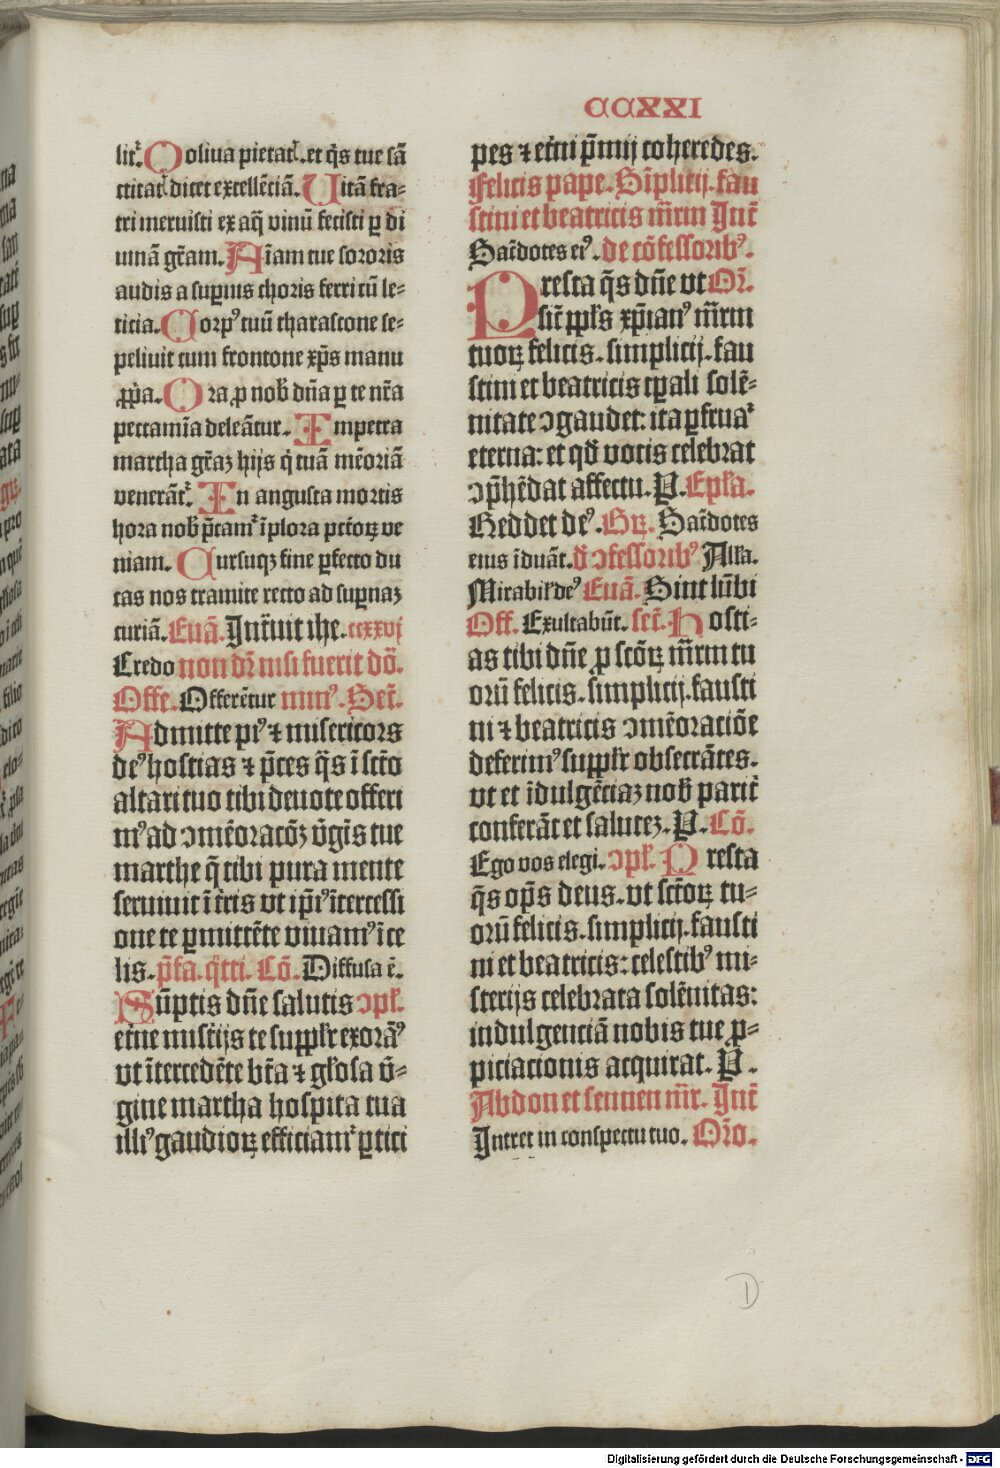 CCXXI
lit᷑. O oliua pietatꝭ. et q̄s tue sā
ctitatꝭ dicet excellēciā. Uitā fra⸗
tri meruisti ex aq̄ vinū fecisti ꝑ di
uinā gr̄am. Aīam tue sororis
audis a suꝑnis choris ferri cū le⸗
ticia. Corpꝰ tuū tharascone se⸗
peliuit cum frontone xp̄s manu
ꝓp̄a. Ora ꝓ nob̄ dn̄a ꝑ te nr̄a
peccamīa deleātur. Impetra
martha gr̄aꝫ hijs q̇ tuā mēoriā
venerāt᷑. In angusta mortis
hora nob̄ p̄stam᷑ īplora pctōꝝ ve
niam. Cursuqꝫ sine ꝑfecto du
cas nos tramite recto ad suꝑnaꝫ
curiā. Euā. Intᷓuit ihe. ccxxvj
Credo non dr̄ nisi fuerit dō.
Offe. Offerētur minꝰ. Secᷓ.
Admitte piꝰ ⁊ misericors
deꝰ hostias ⁊ p̄ces q̄s ī sctō
altari tuo tibi deuote offeri
mꝰ ad ↄmēoracōꝫ v̄gīs tue
marthe q̄ tibi pura mente
seruiuit ī tr̄is vt ip̄iꝰ ītercessi
one te ꝑmittēte viuamꝰ ī ce
lis. p̄fa. q̊tti. Cō. Diffusa ē.
Sūptis dn̄e salutis ↄpł.
et̄ne mistᷓijs te supplr̄ exorāꝰ
vt ītercedēte bt̄a ⁊ głosa v̄⸗
gine martha hospita tua
illiꝰ gaudioꝝ efficiam᷑ ꝑtici
pes ⁊ et̄ni p̄mij coheredes.
Felicis pape. Sīplicij. fau
stini et beatricis mr̄m Intᷓ
Sac̄dotes eiꝰ. de cōfessoribꝰ.
Presta q̄s dn̄e vt Or̄.
sic᷑ ppłs xp̄ianꝰ mr̄m
tuoꝝ felicis. simplicij. fau
stini et beatricis tꝑali solē⸗
nitate ↄgaudet: ita ꝑfrua᷑
eterna: et qđ votis celebrat
ↄp̄hēdat affectu. P. Epła.
Reddet deꝰ. Gꝝ. Sac̄dotes
eius īduāt. đ ↄfessoribꝰ Alła.
Mirabilꝭ deꝰ Euā. Sint lūbi
Off. Exultabūt. secᷓ. Hosti⸗
as tibi dn̄e ꝓ sctōꝝ mr̄m tu
orū felicis. simplicij. fausti
ni ⁊ beatricis ↄmēoratiōe
deferimꝰ supplr̄ obsecrātes.
vt et īdulgēciaꝫ nob̄ paritᷓ
conferāt et saluteꝫ. P. Cō.
Ego vos elegi. ↄpł. Presta
q̄s op̄s deus. vt sctōꝝ tu⸗
orū felicis. simplicij. fausti
ni et beatricis: celestibꝰ mi⸗
sterijs celebrata solēnitas:
indulgenciā nobis tue ꝓ⸗
piciacionis acquirat. P.
Abdon et sennen mr̄r. Intᷓ
Intret in conspectu tuo. Or̄o.
D
Digitalisierung gefördert durch die Deutsche Forschungsgemeinschaft - DFG